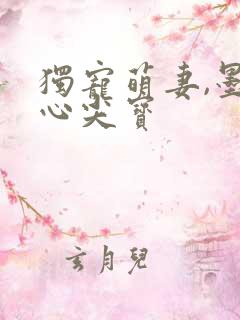 獨寵萌妻,墨
心尖寶
玄月兒